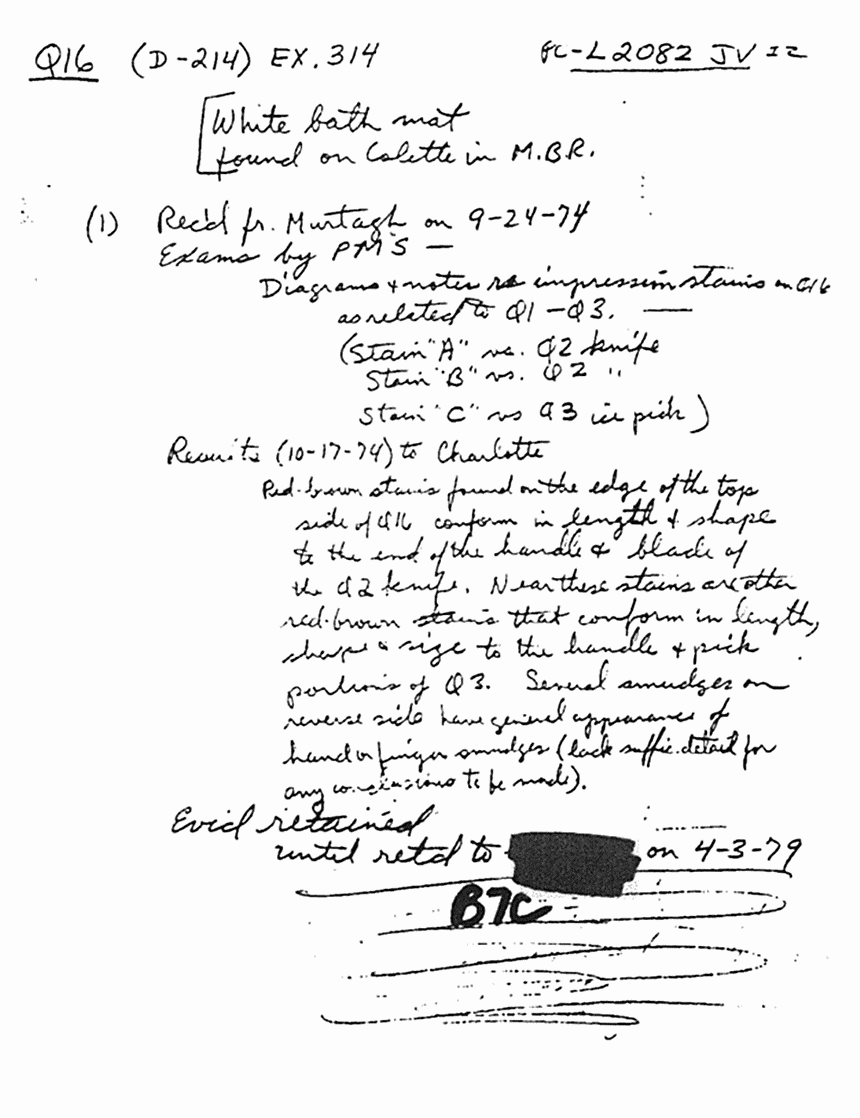 Q16 (D-214) EX. 314 PC-L2082 JV IZ
White bath mat
found on Colette in M.B.R.
(1) Rec'd fr. Murtagh on 9-24-74
Exams by PMS —
Diagrams & notes re impression stains on Q16
as related to Q1-Q3. —
(Stain "A" vs. Q2 knife
Stain "B" vs. Q2 "
Stain "C" vs Q3 ice pick)
Rewrite (10-17-74) to Charlotte
Red-brown stains found on the edge of the top
side of Q16 conform in length & shape
to the end of the handle & blade of
the Q2 knife. Near these stains are other
red-brown stains that conform in length,
shape & size to the handle & pick
portions of Q3. Several smudges on
reverse side have general appearance of
hand or finger smudges (lack suffic. detail for
any conclusions to be made).
Evid retained
until retd to on 4-3-79
B7C